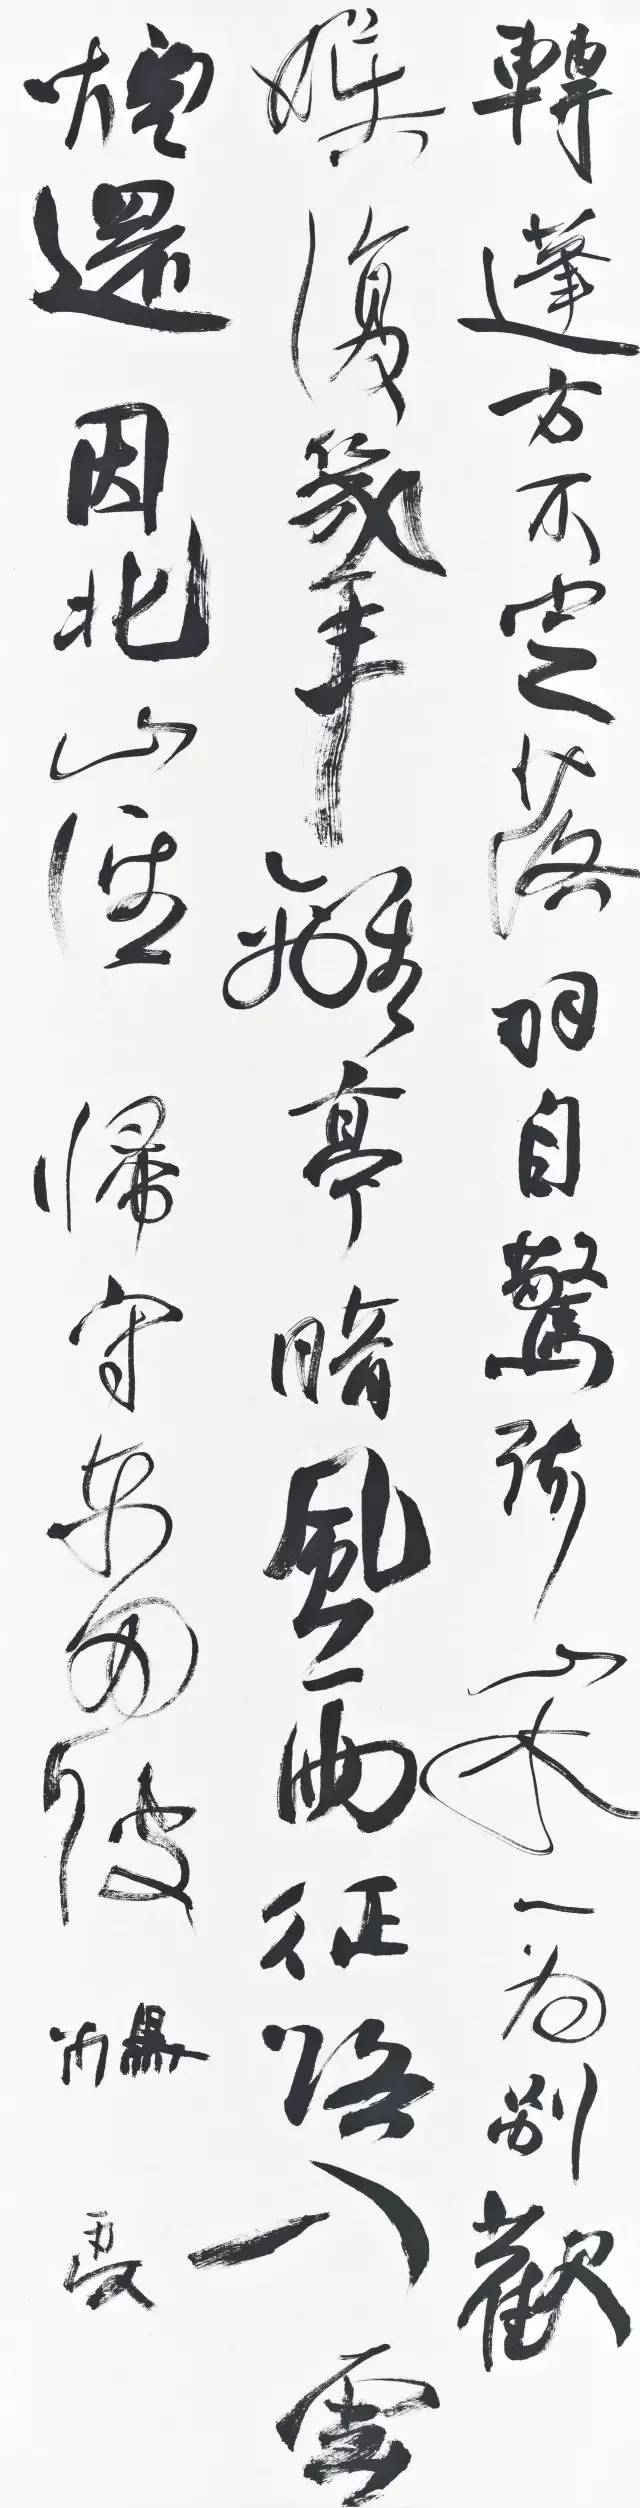 轉蓬方不定落羽自驚弦山水一為別歡
娛復幾年離亭暗風雨征路入雲
煙還因北山徑歸守東陂